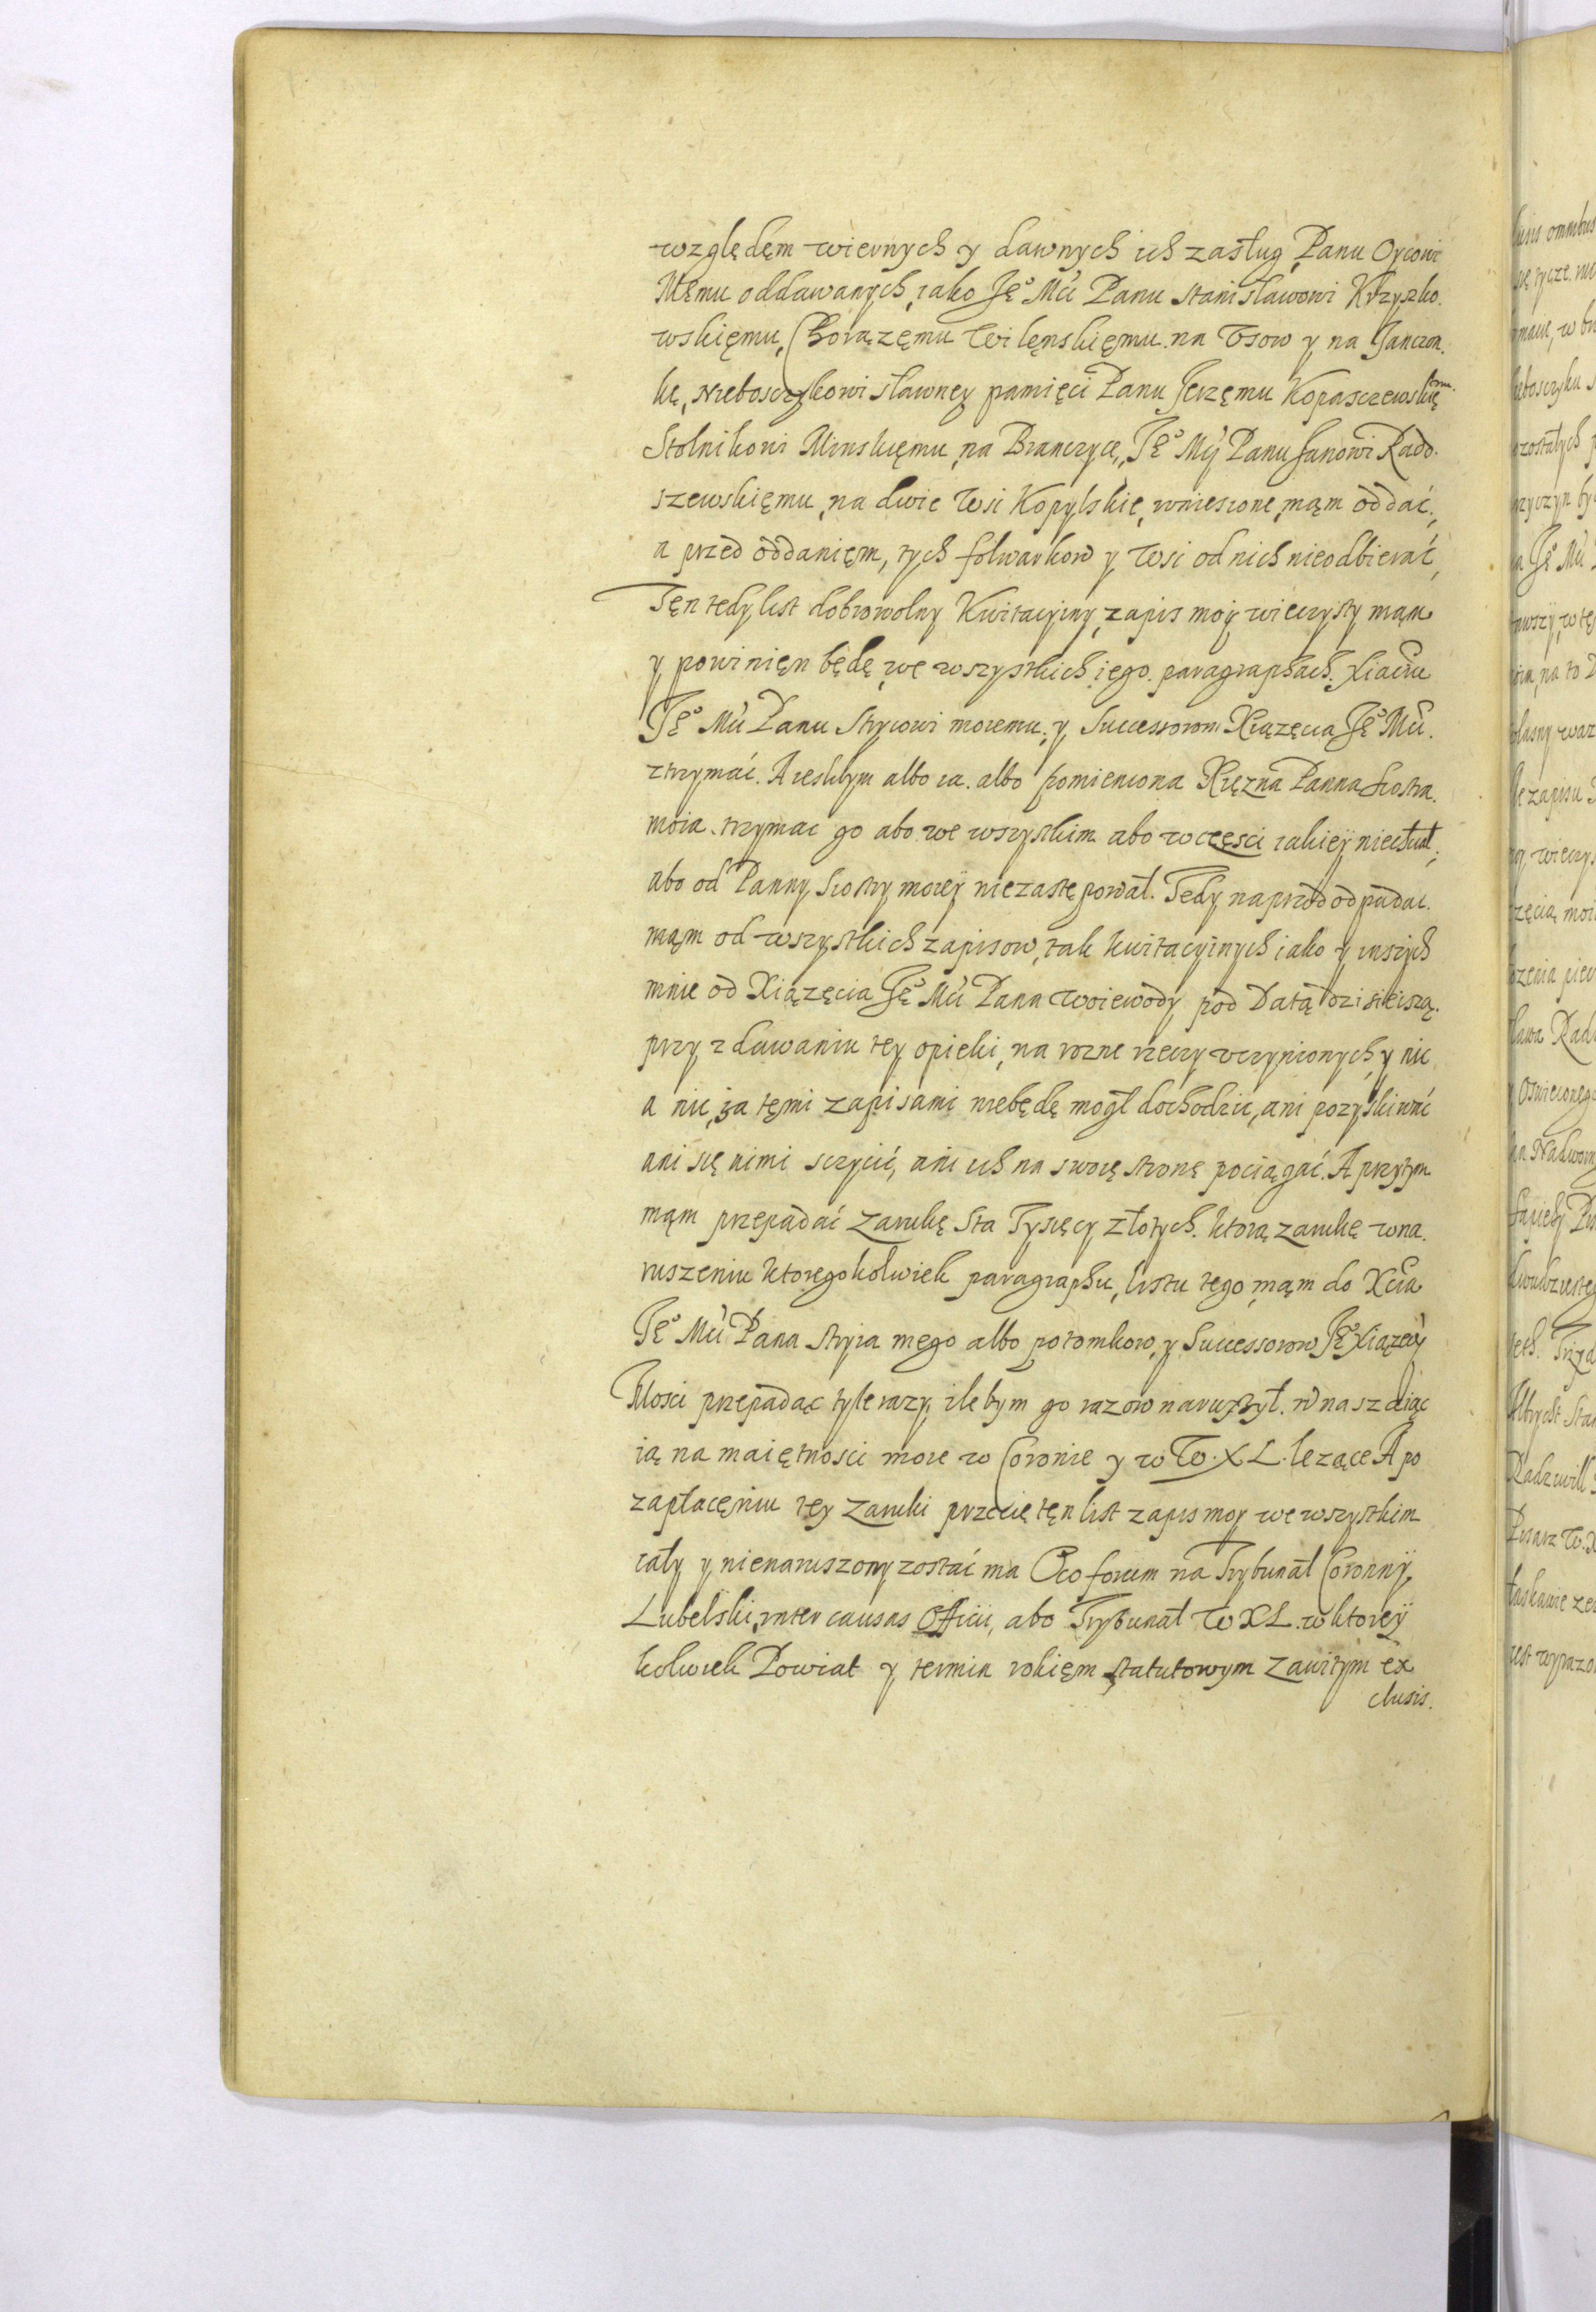 względęm wiernych y dawnych ich zasług Panu Oycowi
Męmu oddawanych, iako Ję° Mci Panu Stanisławowi Krzyszko.
wskięmu, Chorązęmu Wilęnskięmu. na Usow y na Janczon.
kę, Nieboszczykowi sławney pamięci Panu Jerzęmu Kopaszczewskięmu.
Stolnikowi Minskięmu, na Branczyce, Ję° Mci Panu Janowi Rado.
szewskięmu, na dwie Wsi Kopylskie, wniesione, mąm oddać,
a przed oddanięm, tych folwarkow y Wsi od nich nieodbierać,
Tęn tedy list dobrowolny Kwitacyiny, zapis moy wieczysty mąm
y powinięn będę, we wszystkich iego. paragraphach. Xiąciu
Ję° Mci Panu Stryiowi moiemu. y Successorom Xiązęcia Ję° Mci.
ztrzymać. A ieslibym albo ia. albo pomieniona Xięzna Panna Siostra.
moia. trzymac go abo we wszystkim abo w częsci iakieÿ niechciał,
abo od Panny Siostry moieÿ niezastępował. Tedy naprzod odpadac.
mąm od wszystkich zapisow, tak kwitacyinych iako y inszych
mnie od Xiązęcia Ję° Mci Pana Woiewody pod Datą dzisieiszą.
przy zdawaniu tey opieki, na rozne rzeczy uczynionych, y nic
a nic, za tęmi zapisami niebędę mogł dochodzic, ani pozyskiwać
ani się nimi sczycić, ani ich na swoię stronę pociągać. A przytym
mąm przepadać zarukę Sta Tysięcy złotych. ktorą zarukę w na.
ruszeniu ktoregokolwiek paragraphu, listu tego mąm do Xcia
Ję° Mci Pana Stryia mego albo potomkow, y Successorow Ję° Xiązęcÿ
Mosci przepadac tyle razy, ile bym go razow naruszył. wnaszaiąc
ią na maiętnosci moie w Coronie y w W. X L. lezące A po
zapłacęniu tey zaruki przecię tęn list zapis moy we wszystkim
cały y nienaruszony zostać ma O co forum na Trybunał Coronnÿ,
Lubelski, inter causas Officii, abo Trybunał W XL. w ktoreÿ
kolwiek Powiat y termin rokięm statutowym zawitym ex
clusis.